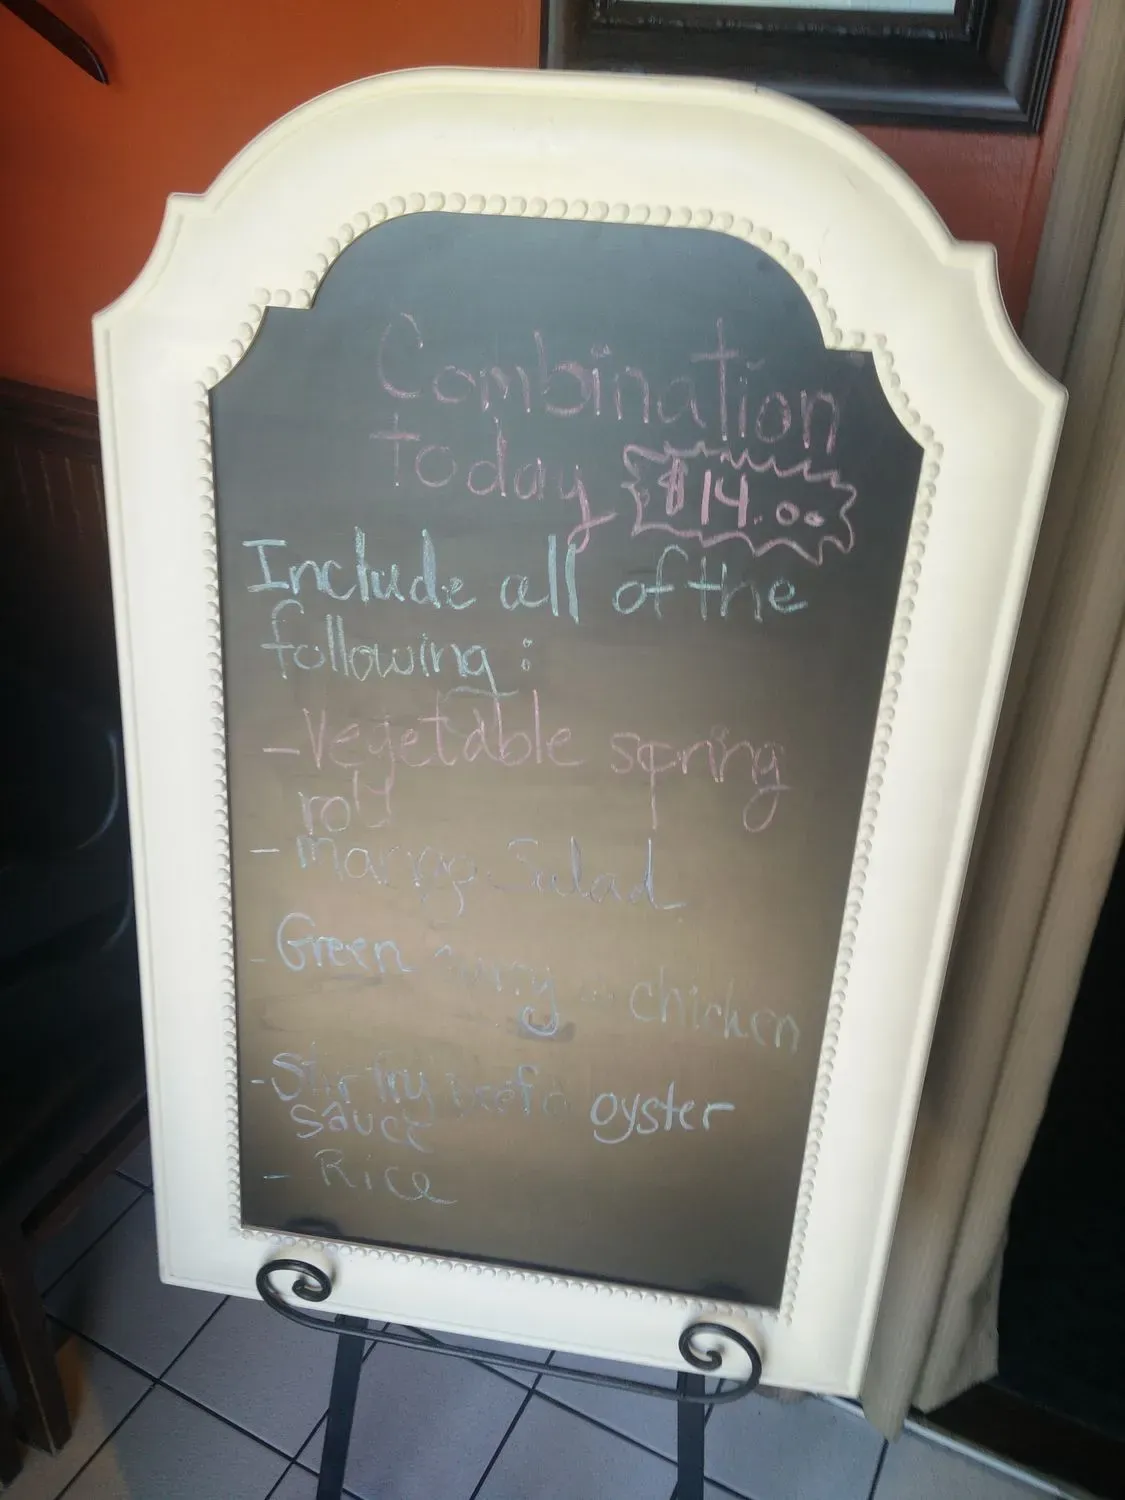 Combination
Today $14.00
Include all of the
following:
- Vegetable spring
roll
- Mango Salad
- Green curry - chicken
- Stir fry beef oyster
sauce
- Rice